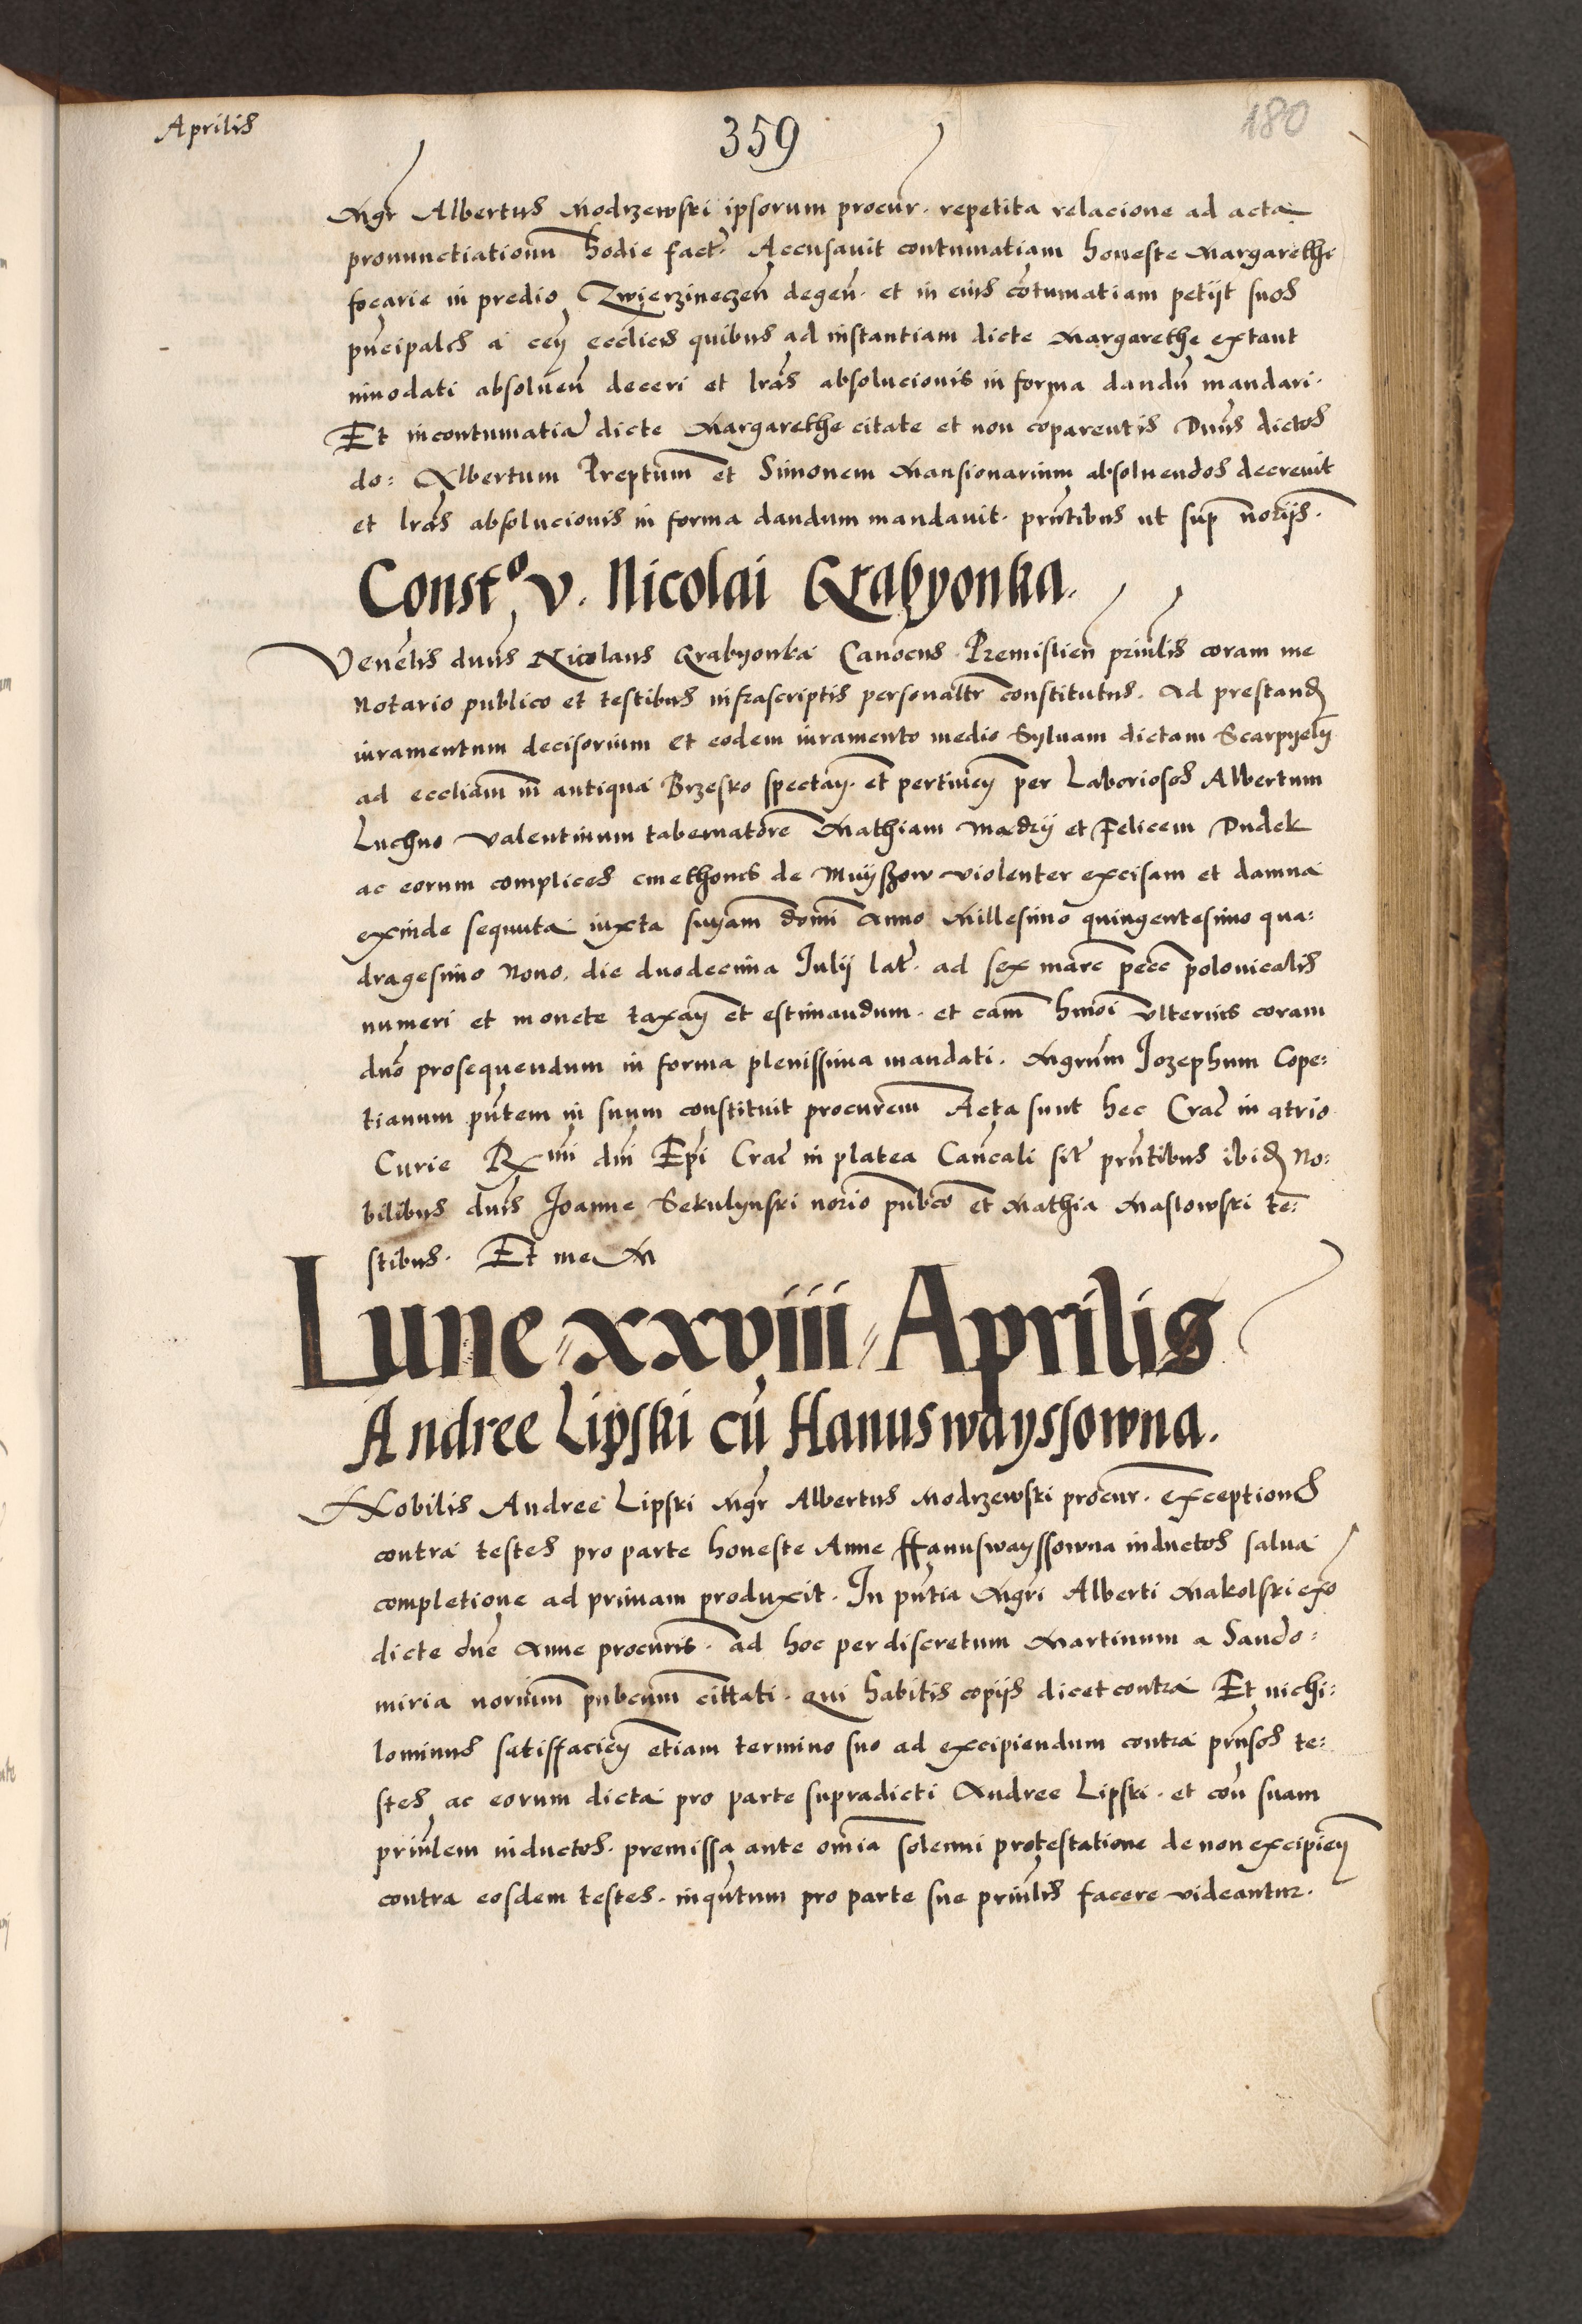 Aprilis
359
180
Mgr Albertus Modrzewski ipsorum procur. repetita relacione ad acta
pronunctiationum hodie fact. Accusavit contumatiam honeste Margarethe
focarie in predio Zwierzineczen degen. et in eius cotumatiam petijt suos
pncipales a cen ecclicis quibus ad instantiam dicte Margarethe extant
innodati absolven deceri et lras absolucionis in forma dandu mandari.
Et in contumatia dicte Margarethe citate et non coparentis Dnus dictos
do: Albertum Preptum et Simonem Mansionarium absoluendos decreuit
et lras absolucionis in forma dandum mandauit. prntibus ut sup noriis.
Const° v. Nicolai Grabyonka.
Venelis dnus Nicolaus Grabyonka Canocus Premislien prinlis coram me
Notario publico et testibus infrascriptis personaltr constitutus. Ad prestand
iuramentum decisorium et eodem iuramento medio Syluam dictam Scarpyely
ad eccliam in antiqua Brzesko spectan. et pertinen per Laboriosos Albertum
Luchno Valentinum tabernatore Mathiam Madry et Felicem Dudek
ac eorum complices cmethones de Muyszow violenter excisam et damna
exinde sequuta iuxta suyam domi Anno Millesimo quingentesimo qua:
dragesimo Nono. die duodecima Iulij lat. ad sex marc pecc polonicalis
numeri et monete taxan et estimandum. et cam hmoi Ulterius coram
dno prosequendum in forma plenissima mandati. Mgrum Jozephum Cope:
tianum pntem in suum constituit procurem Acta sunt hec Crac in atrio
Curie Rx mi dni Epi Crac in platea Cancali sit prntibus ibid No:
bilibus dnis Joanne Sekulynski norio pubco et Mathia Maslowski te:
stibus. Et me M
Lune xxviii Aprilis
Andree Lipski cu Hanuswayssowna.
Nobilis Andree Lipski Mgr Albertus Modrzewski procur. exceptiones
contra testes pro parte honeste Anne Hanuswayssowna inductos salua
completione ad primam produxit. In pntia Mgri Alberti Makolski exo
dicte dne Anne procuris. ad hoc per discretum Martinum a Sando:
miria norium pubcum cittati. qui habitis copijs dicet contra Et nichi:
lominus satisfacien etiam termino suo ad excipiendum contra prnsos te:
stes ac eorum dicta pro parte supradicti Andree Lipski. et con suam
prinlem inductos. premissa ante omia solenni protestatione de non excipien
contra eosdem testes. inqntum pro parte sue prinlis facere videantur.